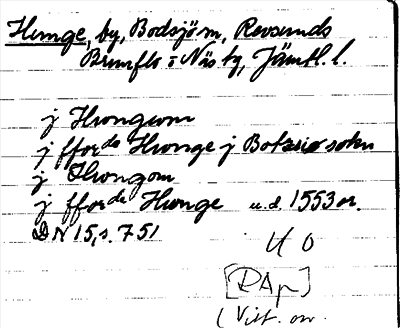 Hunge, by, Bodsjö sn, Revsunds
Brunflo o Näs tg, Jämtl. l.
j Hwngwm
j fforda Hwnge j Botasiø sokn
j Hwngom
j fforda Hwnge u.d. 1553 or.
DN 15, s. 751
U O
[RAp]
(Vitt. or.